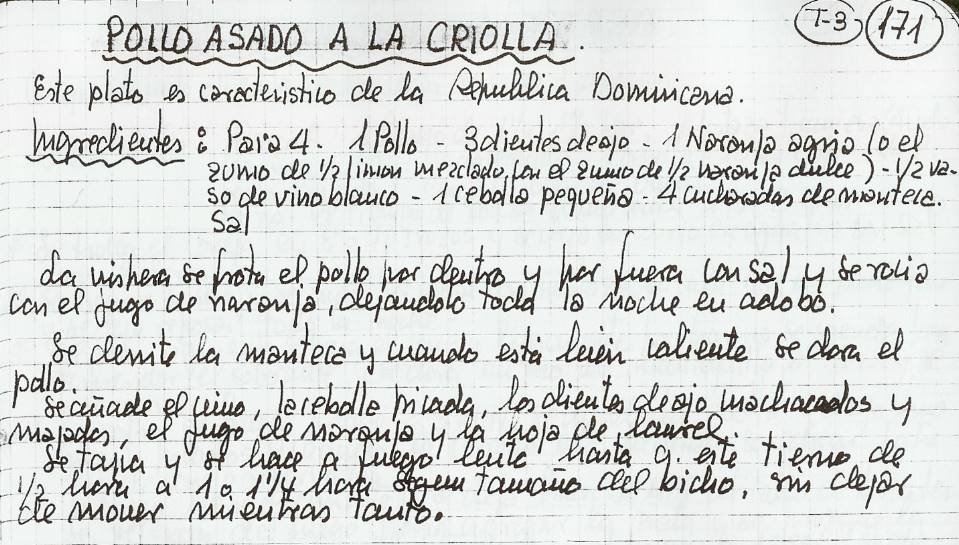 POLLO ASADO A LA CRIOLLA.
T-3 171
Este plato es caracteristico de la Republica Dominicana.
Ingredientes: Para 4. 1 Pollo - 3 dientes de ajo - 1 Naranja agria (o el
zumo de 1/2 limon mezclado, con el zumo de 1/2 naranja dulce) - 1/2 va-
so de vino blanco - 1 cebolla pequeña - 4 cucharadas de manteca.
Sal
La vispera se frota el pollo por dentro y por fuera con sal y se rocia
con el jugo de naranja, dejandolo toda la noche en adobo.
Se derrite la manteca y cuando está bien caliente se dora el
pollo.
Se añade el vino, la cebolla picada, los dientes de ajo machacados y
majados, el jugo de naranja y la hoja de laurel.
Se tapa y se hace a fuego lento hasta q. esté tierno de
1/2 hora a 1 o 1 1/4 hora según tamaño del bicho, sin dejar
de mover mientras tanto.